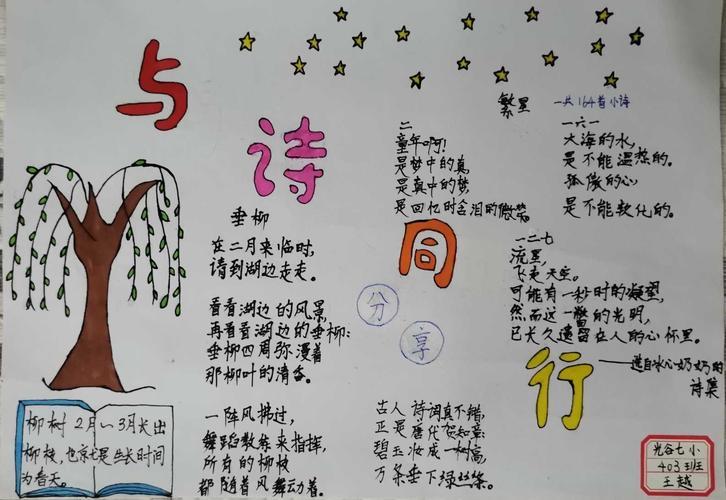 与诗同行
分享
垂柳
在二月来临时,
请到湖边走走。
看看湖边的风景,
再看看湖边的垂柳:
垂柳四周弥漫着
那柳叶的清香。
一阵风拂过,
舞蹈教练来指挥,
所有的柳枝
都随着风舞动着。
柳树2月~3月长出
柳枝,也就是生长时间
为春天。
繁星 一共164首小诗
二
童年啊!
是梦中的真,
是真中的梦,
是回忆时含泪的微笑。
一六一
大海的水,
是不能温热的。
孤傲的心,
是不能软化的。
一二七
流星,
飞走天空。
可能有一秒时的凝望,
然而这一瞥的光明,
已长久遗留在人的心怀里。
——选自冰心奶奶的
诗集
古人诗词真不错,
正是唐代贺知章:
碧玉妆成一树高,
万条垂下绿丝条。
光谷七小
403班
王越